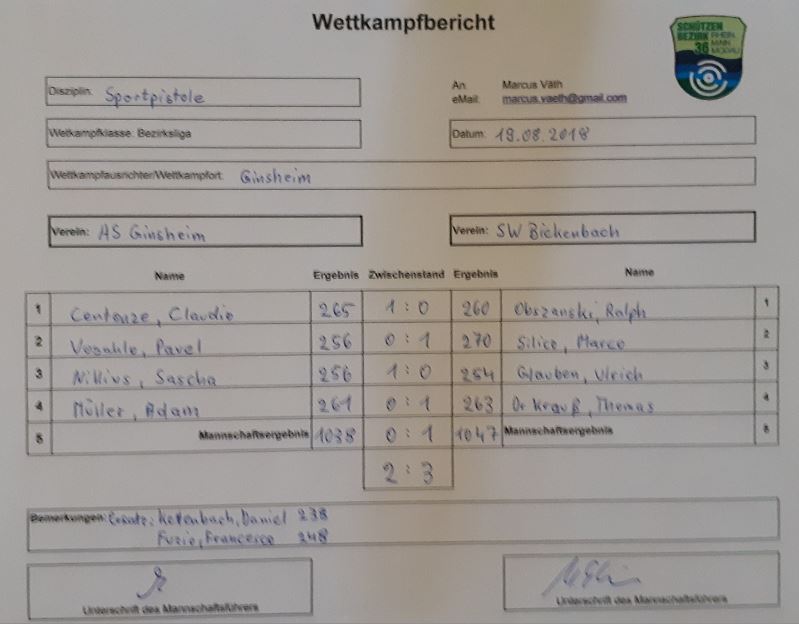 Wettkampfbericht
SCHÜTZEN
BEZIRK RHEIN
36 MAIN
Disziplin: Sportpistole
An: Marcus Väth
eMail: marcus.vaeth@gmail.com
Wettkampfklasse: Bezirksliga
Datum: 19.08.2018
Wettkampfausrichter/Wettkampfort: Ginsheim
Verein: AS Ginsheim
Verein: SW Bickenbach
Name Ergebnis Zwischenstand Ergebnis Name
1 Centonze, Claudio 265 1 : 0 260 Obszanski, Ralph 1
2 Vozahle, Pavel 256 0 : 1 270 Silico, Marco 2
3 Niklius, Sascha 256 1 : 0 254 Glauben, Ulrich 3
4 Müller, Adam 261 0 : 1 263 Dr Krauß, Thomas 4
5 Mannschaftsergebnis 1038 0 : 1 1047 Mannschaftsergebnis 5
2 : 3
Bemerkungen: Ersatz: Kettenbach, Daniel 238
Fuzio, Francesco 248
Unterschrift des Mannschaftsführers
Unterschrift des Mannschaftsführers